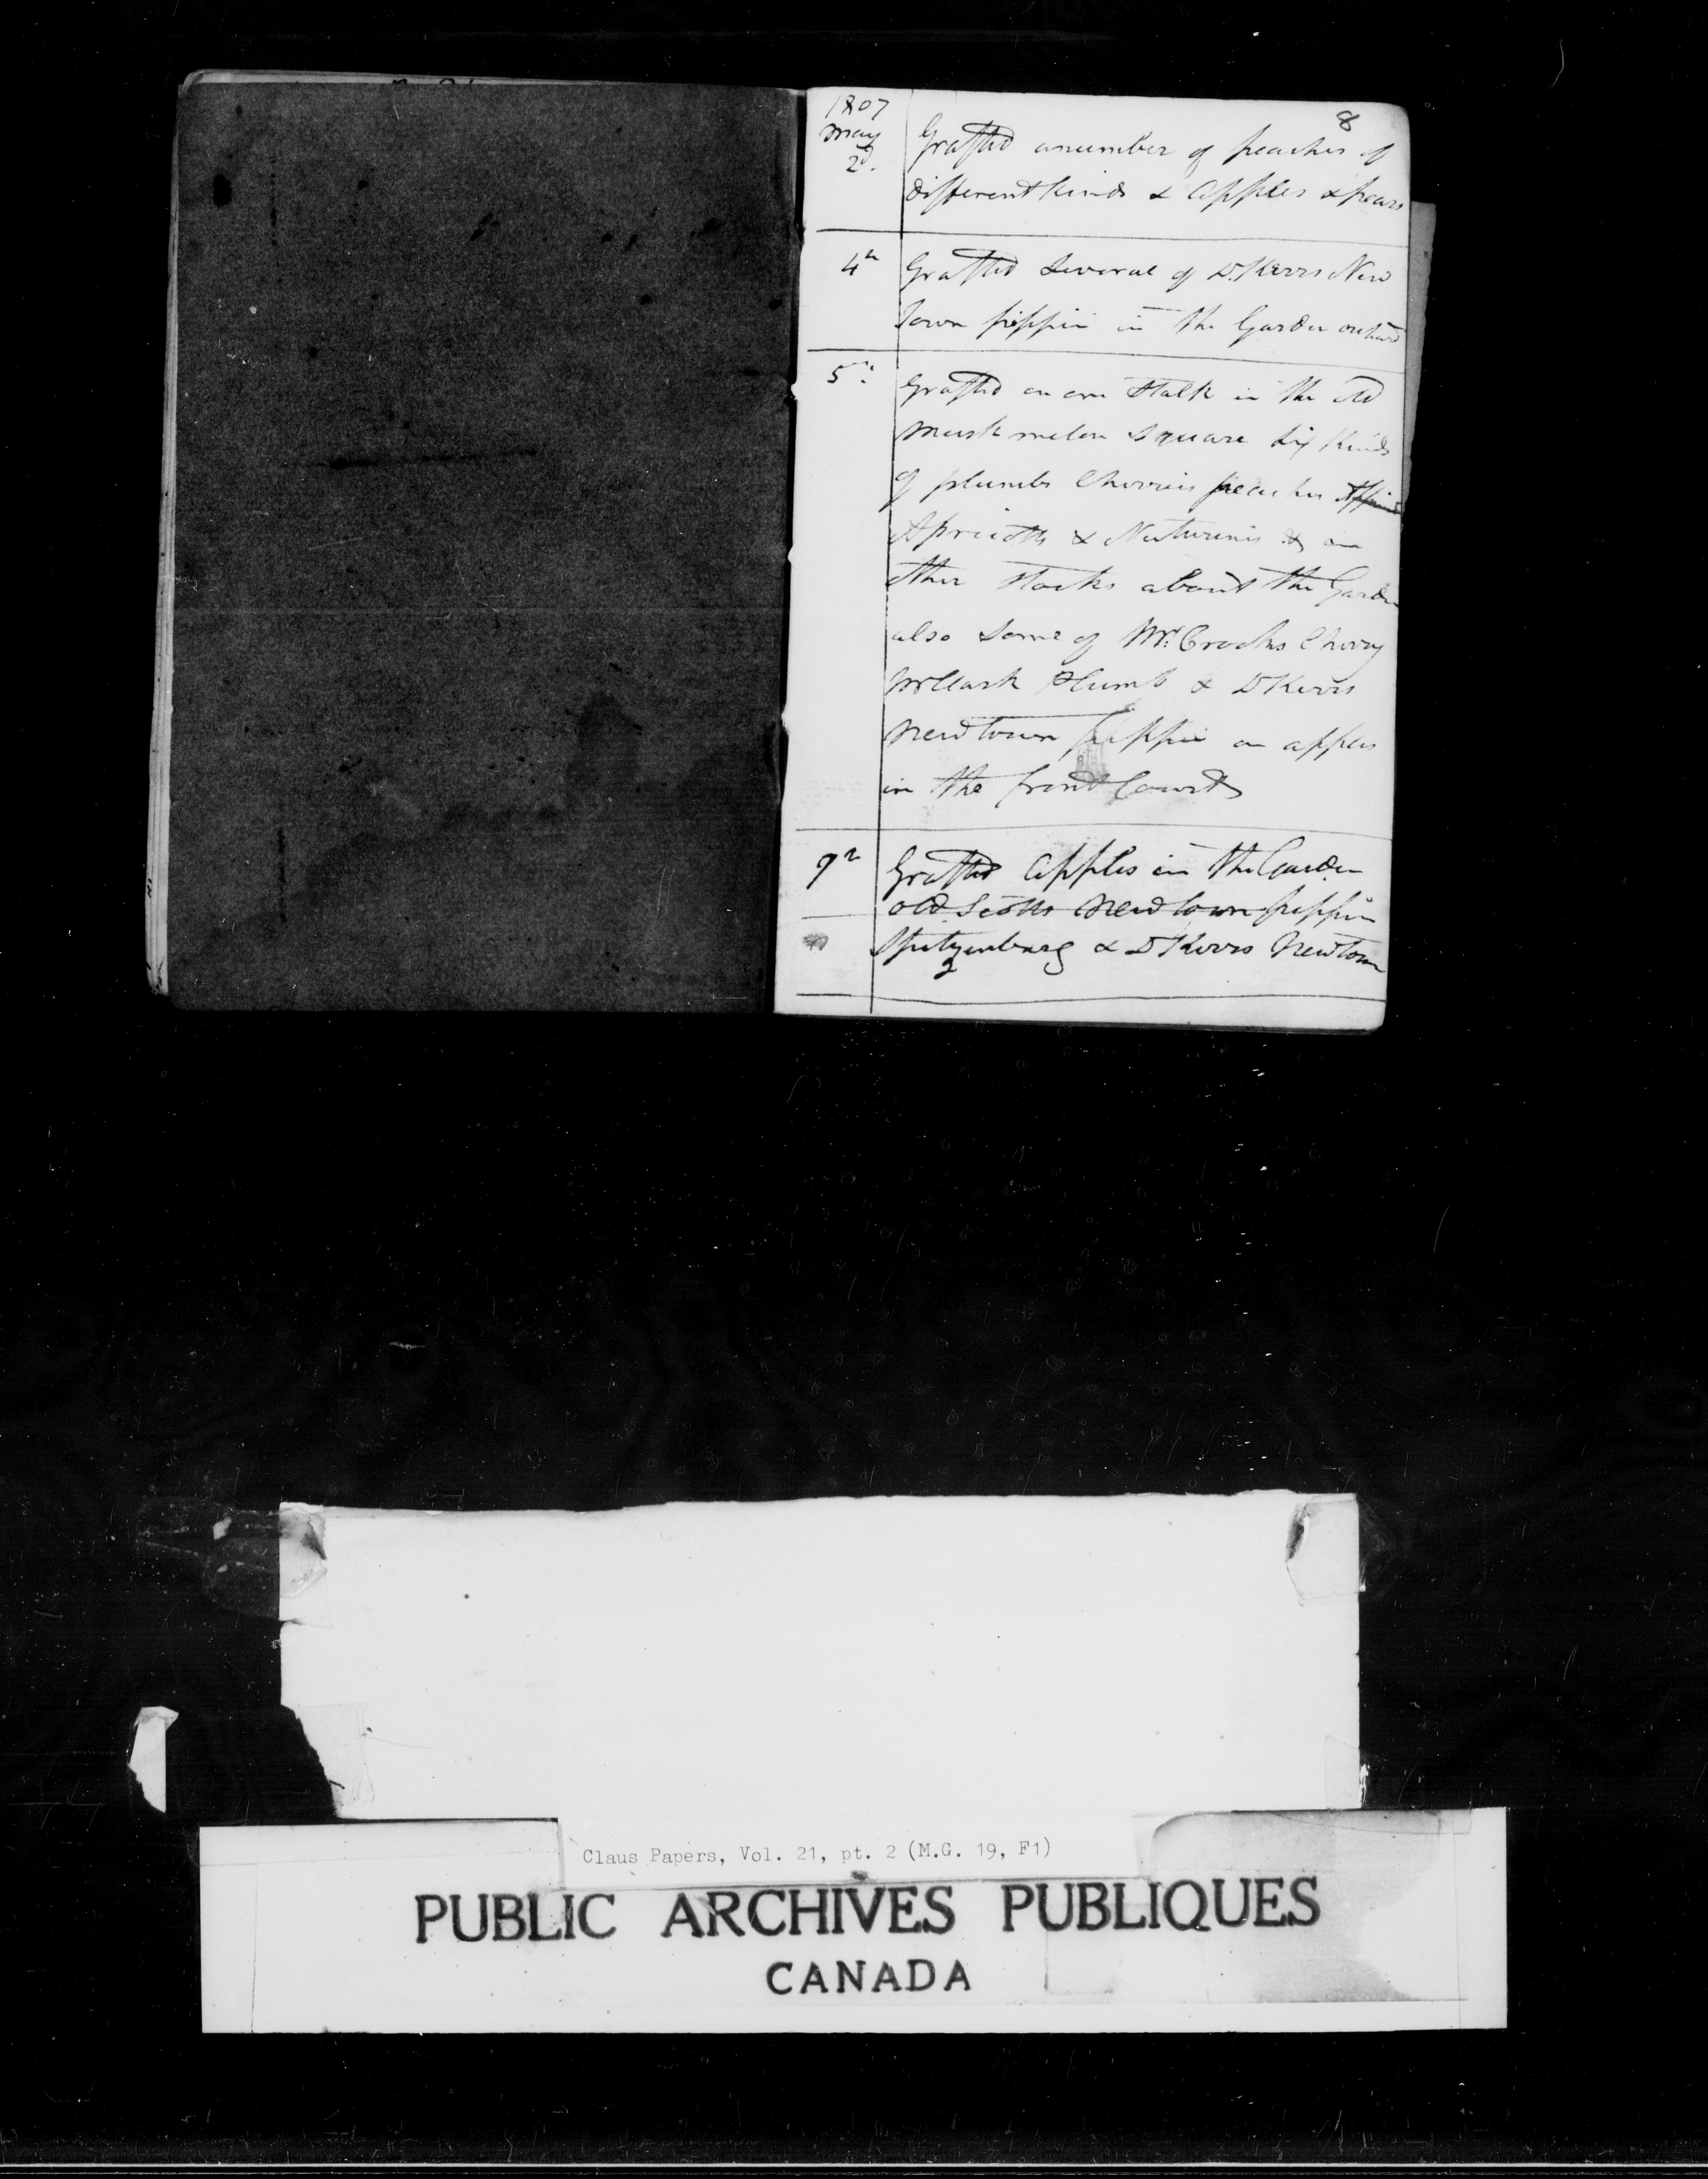 1807
8
may
2d.
Grafted a number of peaches of
different kinds & apples & pears
4th
Grafted Several of Dr. Kerrs New
Town pippin in the Garden orchard
5th
Grafted on one Stalk in the old
musk melon Square Six Kinds
of plumbs Cherries peaches
Apricotts & Nectarines & on
other Stocks about the Garden
also Some of Mr. Crooks Cherry
Mr Clark Plumb & Dr Kerrs
Newtown pippin on apples
in the front Court
9th
Grafted apples in the Garden
old Scotts Newtown pippin
Spitzenburg & Dr Kerrs Newtown
2
Claus Papers, Vol. 21, pt. 2 (M.G. 19, F1)
PUBLIC ARCHIVES PUBLIQUES
CANADA